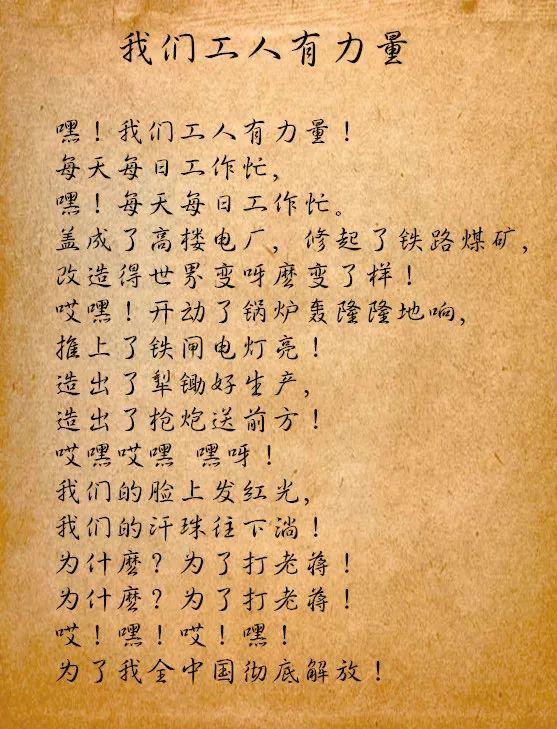 我们工人有力量
嘿！我们工人有力量！
每天每日工作忙，
嘿！每天每日工作忙。
盖成了高楼电厂，修起了铁路煤矿，
改造得世界变呀麽变了样！
哎嘿！开动了锅炉轰隆隆地响，
推上了铁闸电灯亮！
造出了犁锄好生产，
造出了枪炮送前方！
哎嘿哎嘿 嘿呀！
我们的脸上发红光，
我们的汗珠往下淌！
为什麽？为了打老蒋！
为什麽？为了打老蒋！
哎！嘿！哎！嘿！
为了我全中国彻底解放！